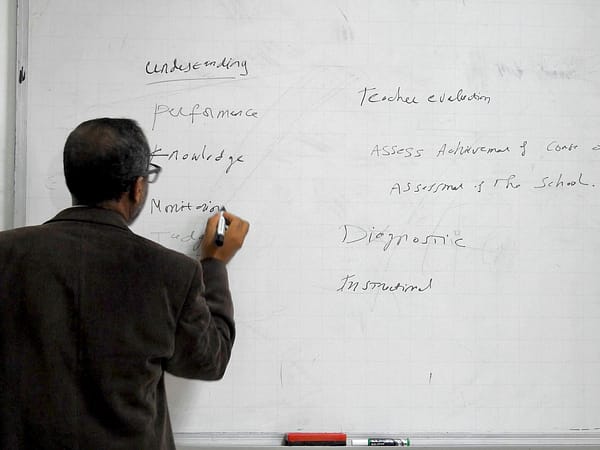 Understanding
Performance
Knowledge
Monitoring
Teacher evaluation
Assess Achievement of
Assessment of The School.
Diagnostic
Instructional